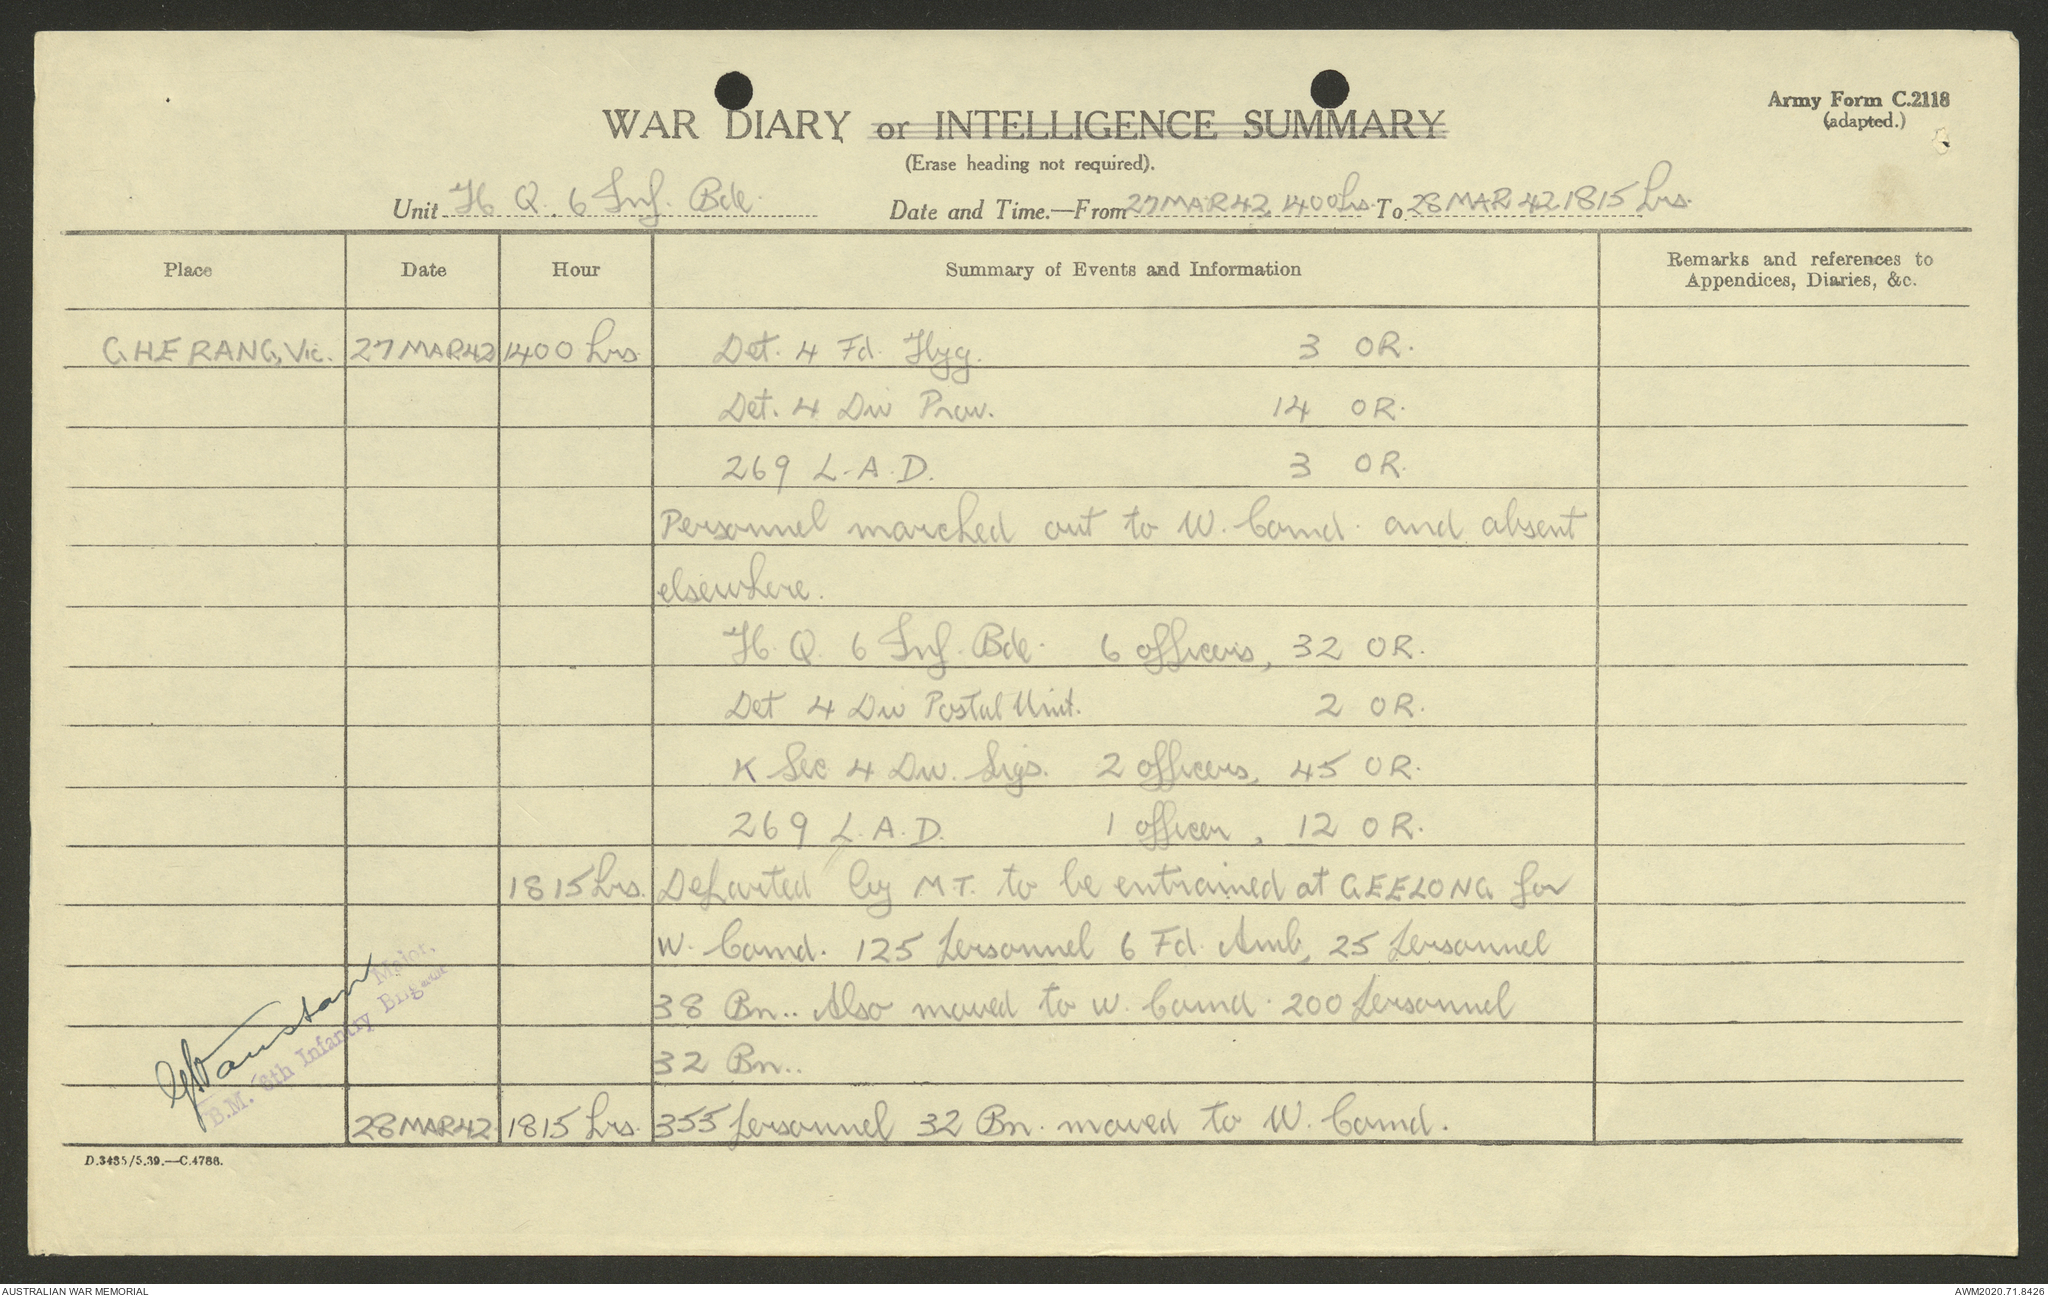 Army Form C.2118
(adapted.)
WAR DIARY or INTELLIGENCE SUMMARY
(Erase heading not required).
Unit H Q. 6 Inf. Bde. Date and Time.—From 27 MAR 42, 1400 hrs. To 28 MAR 42 1815 hrs.
Place Date Hour Summary of Events and Information Remarks and references to
Appendices, Diaries, &c.
GHERANG, Vic. 27 MAR 42 1400 hrs. Det. 4 Fd. Hyg. 3 OR.
Det. 4 Div Prov. 14 OR.
269 L.A.D. 3 OR.
Personnel marched out to W. Comd. and absent
elsewhere.
H. Q. 6 Inf. Bde. 6 officers, 32 OR.
Det 4 Div Postal Unit. 2 OR.
K Sec 4 Div. Sigs. 2 officers, 45 OR.
269 L.A.D. 1 officer, 12 OR.
1815 hrs. Departed by M T. to be entrained at GEELONG for
W. Comd. 125 personnel 6 Fd. Amb, 25 personnel
38 Bn.. Also moved to W. Comd. 200 personnel
32 Bn..
Major,
B.M. 6th Infantry Brigade
28 MAR 42 1815 hrs. 355 personnel 32 Bn. moved to W. Comd.
D.3435/5.39.—C.4788.
AUSTRALIAN WAR MEMORIAL AWM2020.71.8426